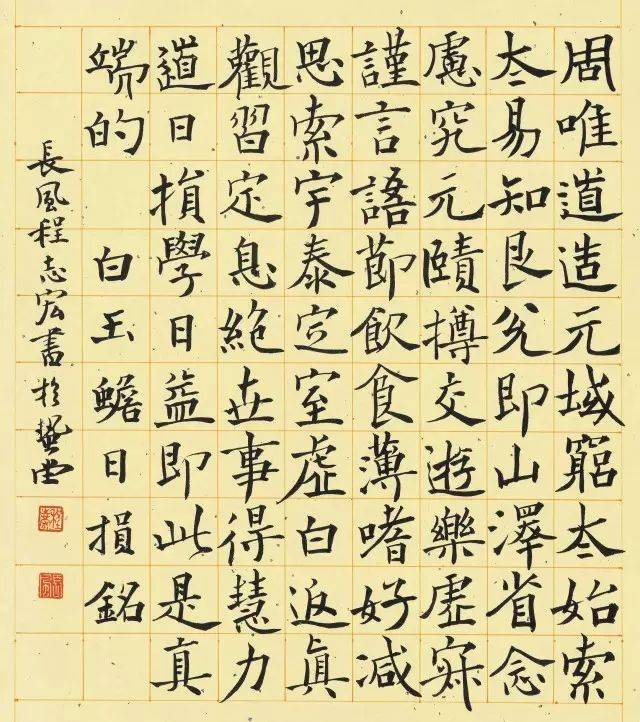 周唯道造元域窮太始索
太易知艮兌即山澤省念
慮究元賾撙交遊樂虛寂
謹言語節飲食薄嗜好減
思索宇泰定室虛白返眞
觀習定息絶世事得慧力
道日損學日益即此是真
端的 白玉蟾日損銘
長風程志宏書於